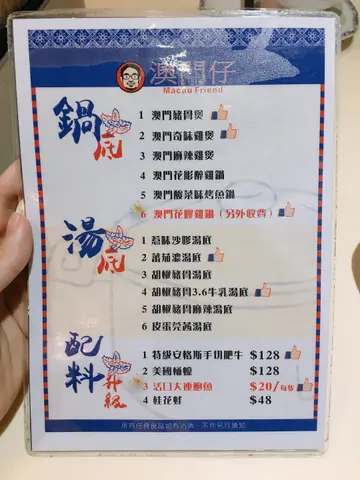 澳門仔
Macau Friend
鍋底
1 澳門豬骨煲
2 澳門奇味雞煲
3 澳門麻辣雞煲
4 澳門花彫醉雞鍋
5 澳門酸菜味烤魚鍋
6 澳門花膠雞鍋 (另外收費)
湯底
1 惹味沙嗲湯底
2 蕃茄濃湯底
3 胡椒豬骨湯底
4 胡椒豬骨3.6牛乳湯底
5 胡椒豬骨麻辣湯底
6 皮蛋芫茜湯底
配料升級
1 特級安格斯手切肥牛 $128
2 美國桶蠔 $128
3 活口大連鮑魚 $20/每隻
4 桂花蚌 $48